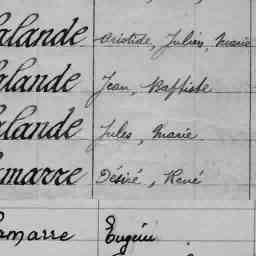 alande Aristide, Julien, Marie
alande Jean, Baptiste
alande Jules, Marie
amarre Désiré, René
amarre Eugén